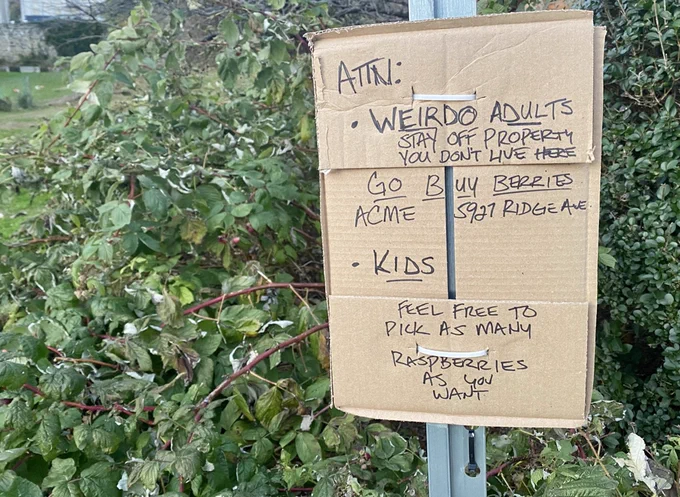 ATTN:
• WEIRDO ADULTS
STAY OFF PROPERTY
YOU DONT LIVE HERE
GO BUY BERRIES
ACME 5927 RIDGE AVE.
• KIDS
FEEL FREE TO
PICK AS MANY
RASPBERRIES
AS YOU
WANT